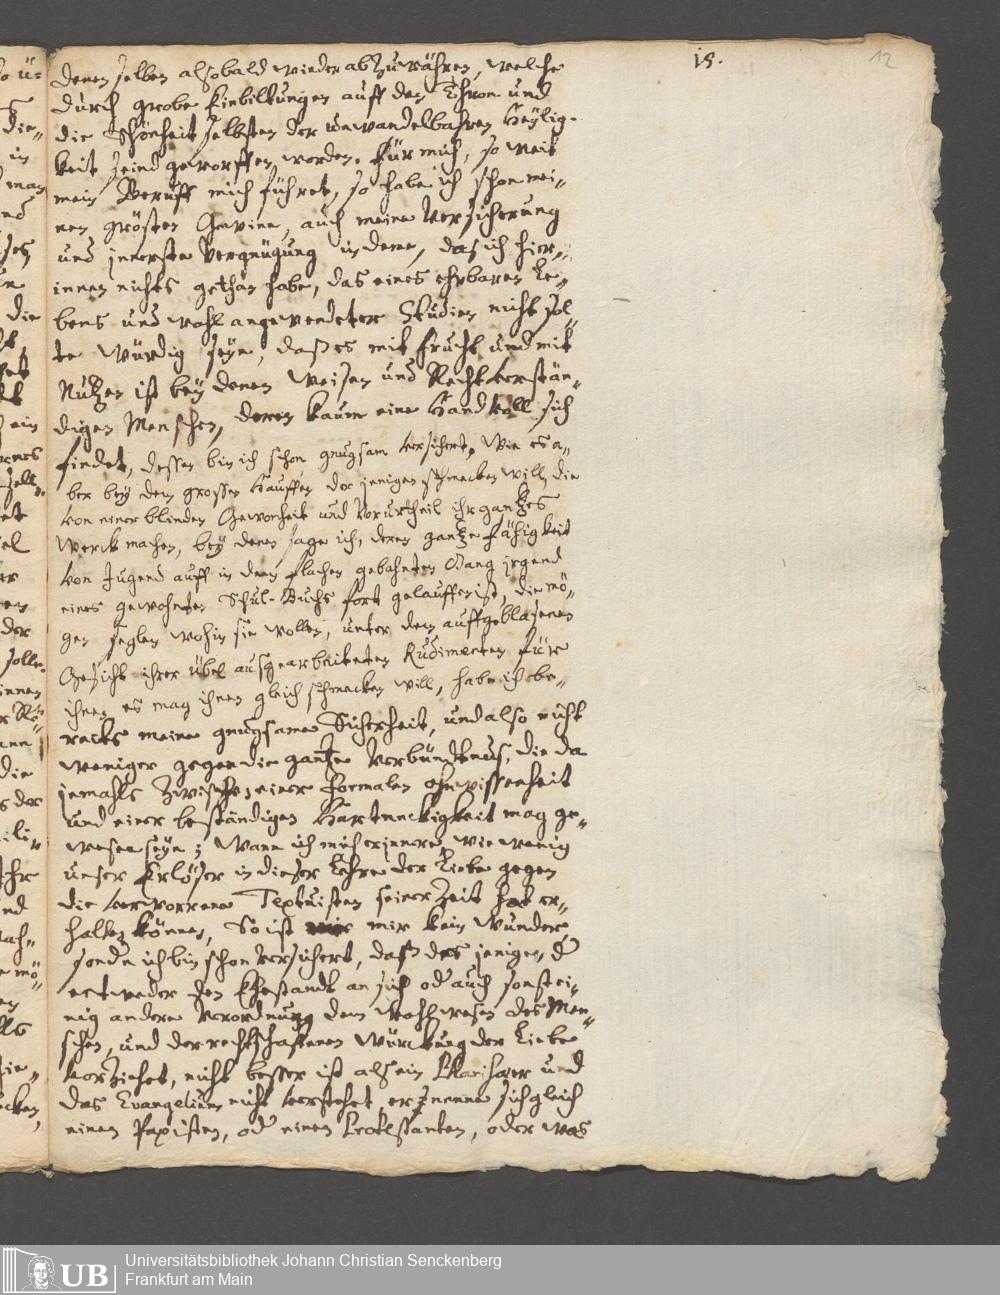 15.
12
denen selben alsobald wieder abzuwähren, welche
durch grobe Einbildungen auff den Thron und
die Schönheit selbsten der unwandelbahren Heylig-
keit seind geworffen worden. Für mich, so weit
mein Beruff mich führet, so habe ich schon mei-
nen grösten Gewinn, auch meine Versicherung
und jnnerste Vergnügung in deme, das ich hier-
innen nichts gethan habe, das eines ehrbaren Le-
bens und wohl angewendeter Studien nicht sol-
te würdig seyn, daß es mit frucht und mit
Nutzen ist bey denen Weisen und Rechtverstän-
digen Menschen, deren kaum eine Handvoll sich
findet, dessen bin ich schon gnugsam versichert, Wie es a-
ber bey dem grossen Hauffen der jenigen schmecken will, die
von einer blinden Gewonheit und Vorurtheil ihr gantzes
Werck machen, bey denen sage ich, deren gantze fähigkeit
von Jugend auff in dem flachen gebahnten Gang jrgend
eines gewohnten Schul-Buchs fort gelauffen ist, die mö-
gen seglen wohin sie wollen, unter dem auffgeblasenen
Gesicht ihrer übel ausgearbeiteten Rudimenten für
ihnen es mag ihnen gleich schmecken will, habe ich be-
reits meine gnugsame Sicherheit, und also nicht
weniger gegen die gantze Verbündtnus, die da
jemahls zwischen einer formalen ohnwissenheit
und einer beständigen Hartneckigkeit mag ge-
wesen seyn; Wann ich mich erinnere, wie wenig
unser Erlöser in dieser Lehre der Liebe gegen
die verworrene Textuisten seiner Zeit hat er-
halten können, So ist mir kein Wunder
sondn ich bin schon versichert, daß der jenige, d
entweder den Ehestandt an sich od auch sonst ei-
nig andere Verordnung dem Wohlwesen des Men-
schen, und der rechtschaffenen Würckung der Liebe
vorziehet, nicht besser ist als ein Pharisaer und
das Evangelium nicht verstehet, er nenne sich gleich
einen Papisten, od einen Protestanten, oder was
Universitätsbibliothek Johann Christian Senckenberg
Frankfurt am Main
UB